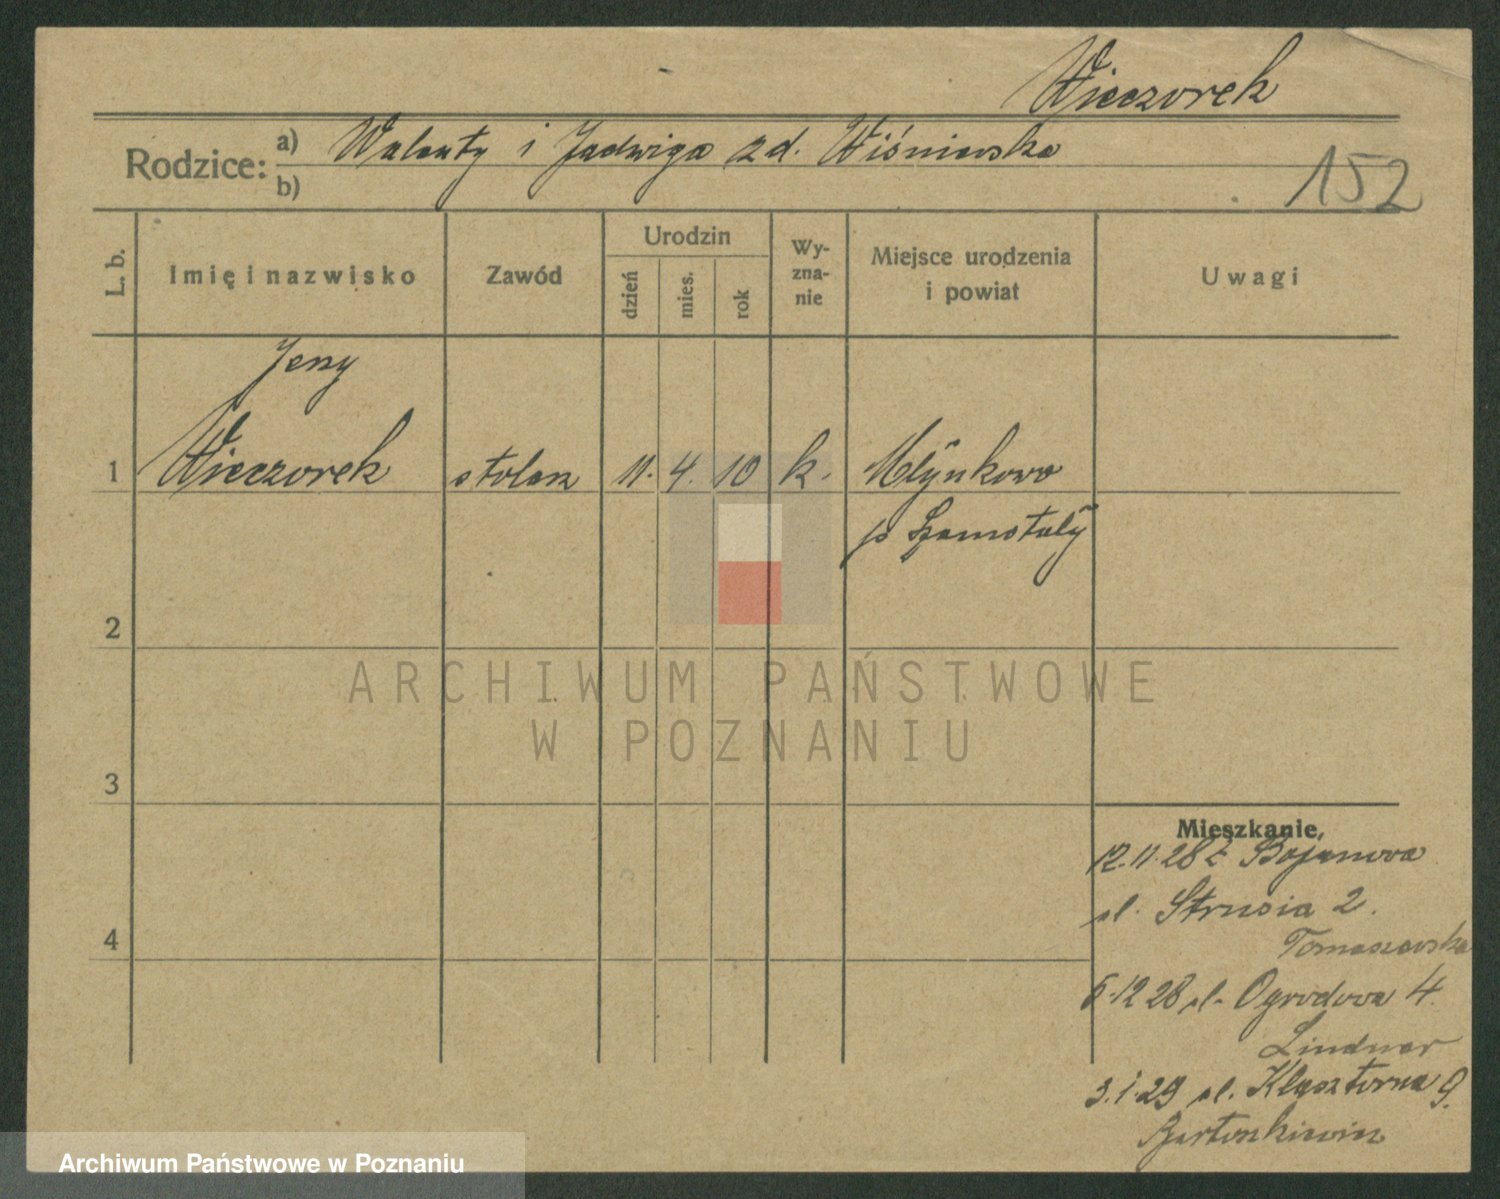 Wieczorek
Rodzice: a) Walenty i Jadwiga zd. Wiśniewska
b)
152
L. b.
Imię i nazwisko
Zawód
Urodzin
dzień
mies.
rok
Wy-
zna-
nie
Miejsce urodzenia
i powiat
Uwagi
Jerzy
1 Wieczorek stolarz 11. 4. 10 k. Młynkowo
p Szamotuły
2
ARCHIWUM PAŃSTWOWE
W POZNANIU
3
Mieszkanie,
12.11.28 z Bojanowa
ul. Strusia 2.
Tomaszewska
4
5.12 28 ul. Ogrodowa 4.
Lindner
3.1.29 ul. Klasztorna 9.
Bartoszkiewicz
Archiwum Państwowe w Poznaniu